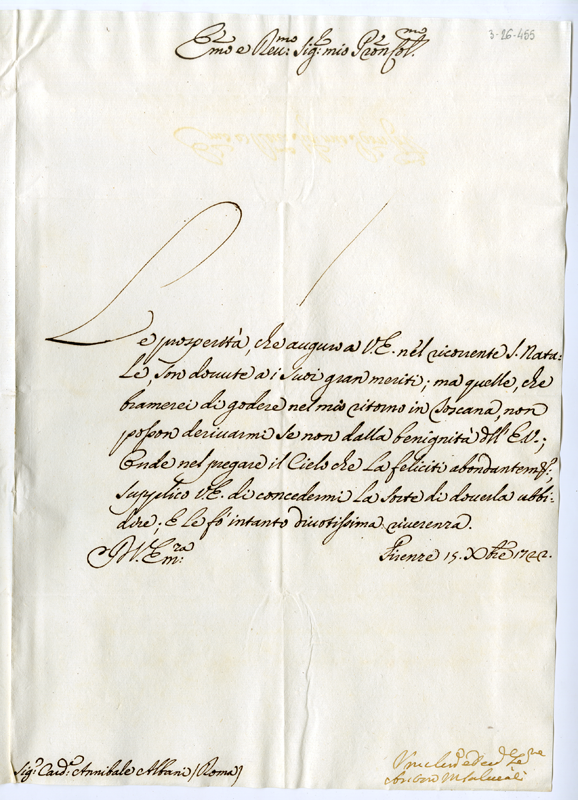 3-26-455
E.mo e Reu.mo Sig.r mio P.ron Col.mo
Le prosperità, che auguro a V.E. nel ricorrente S. Nata-
le, son douute a i suoi gran meriti; ma quelle, che
bramerei di godere nel mio ritorno in Toscana, non
posson deriuarmi se non dalla benignità dell'E.V.;
Onde nel pregare il Cielo che La feliciti abondantem.te,
supplico V.E. di concedermi La sorte di douerla ubbi-
dire; E Le fo intanto diuotissima riuerenza.
Di V.E. m.ra
Firenze 15. Xbre 1722.
Sig.r Card.l Annibale Albani (Roma)
Salviati